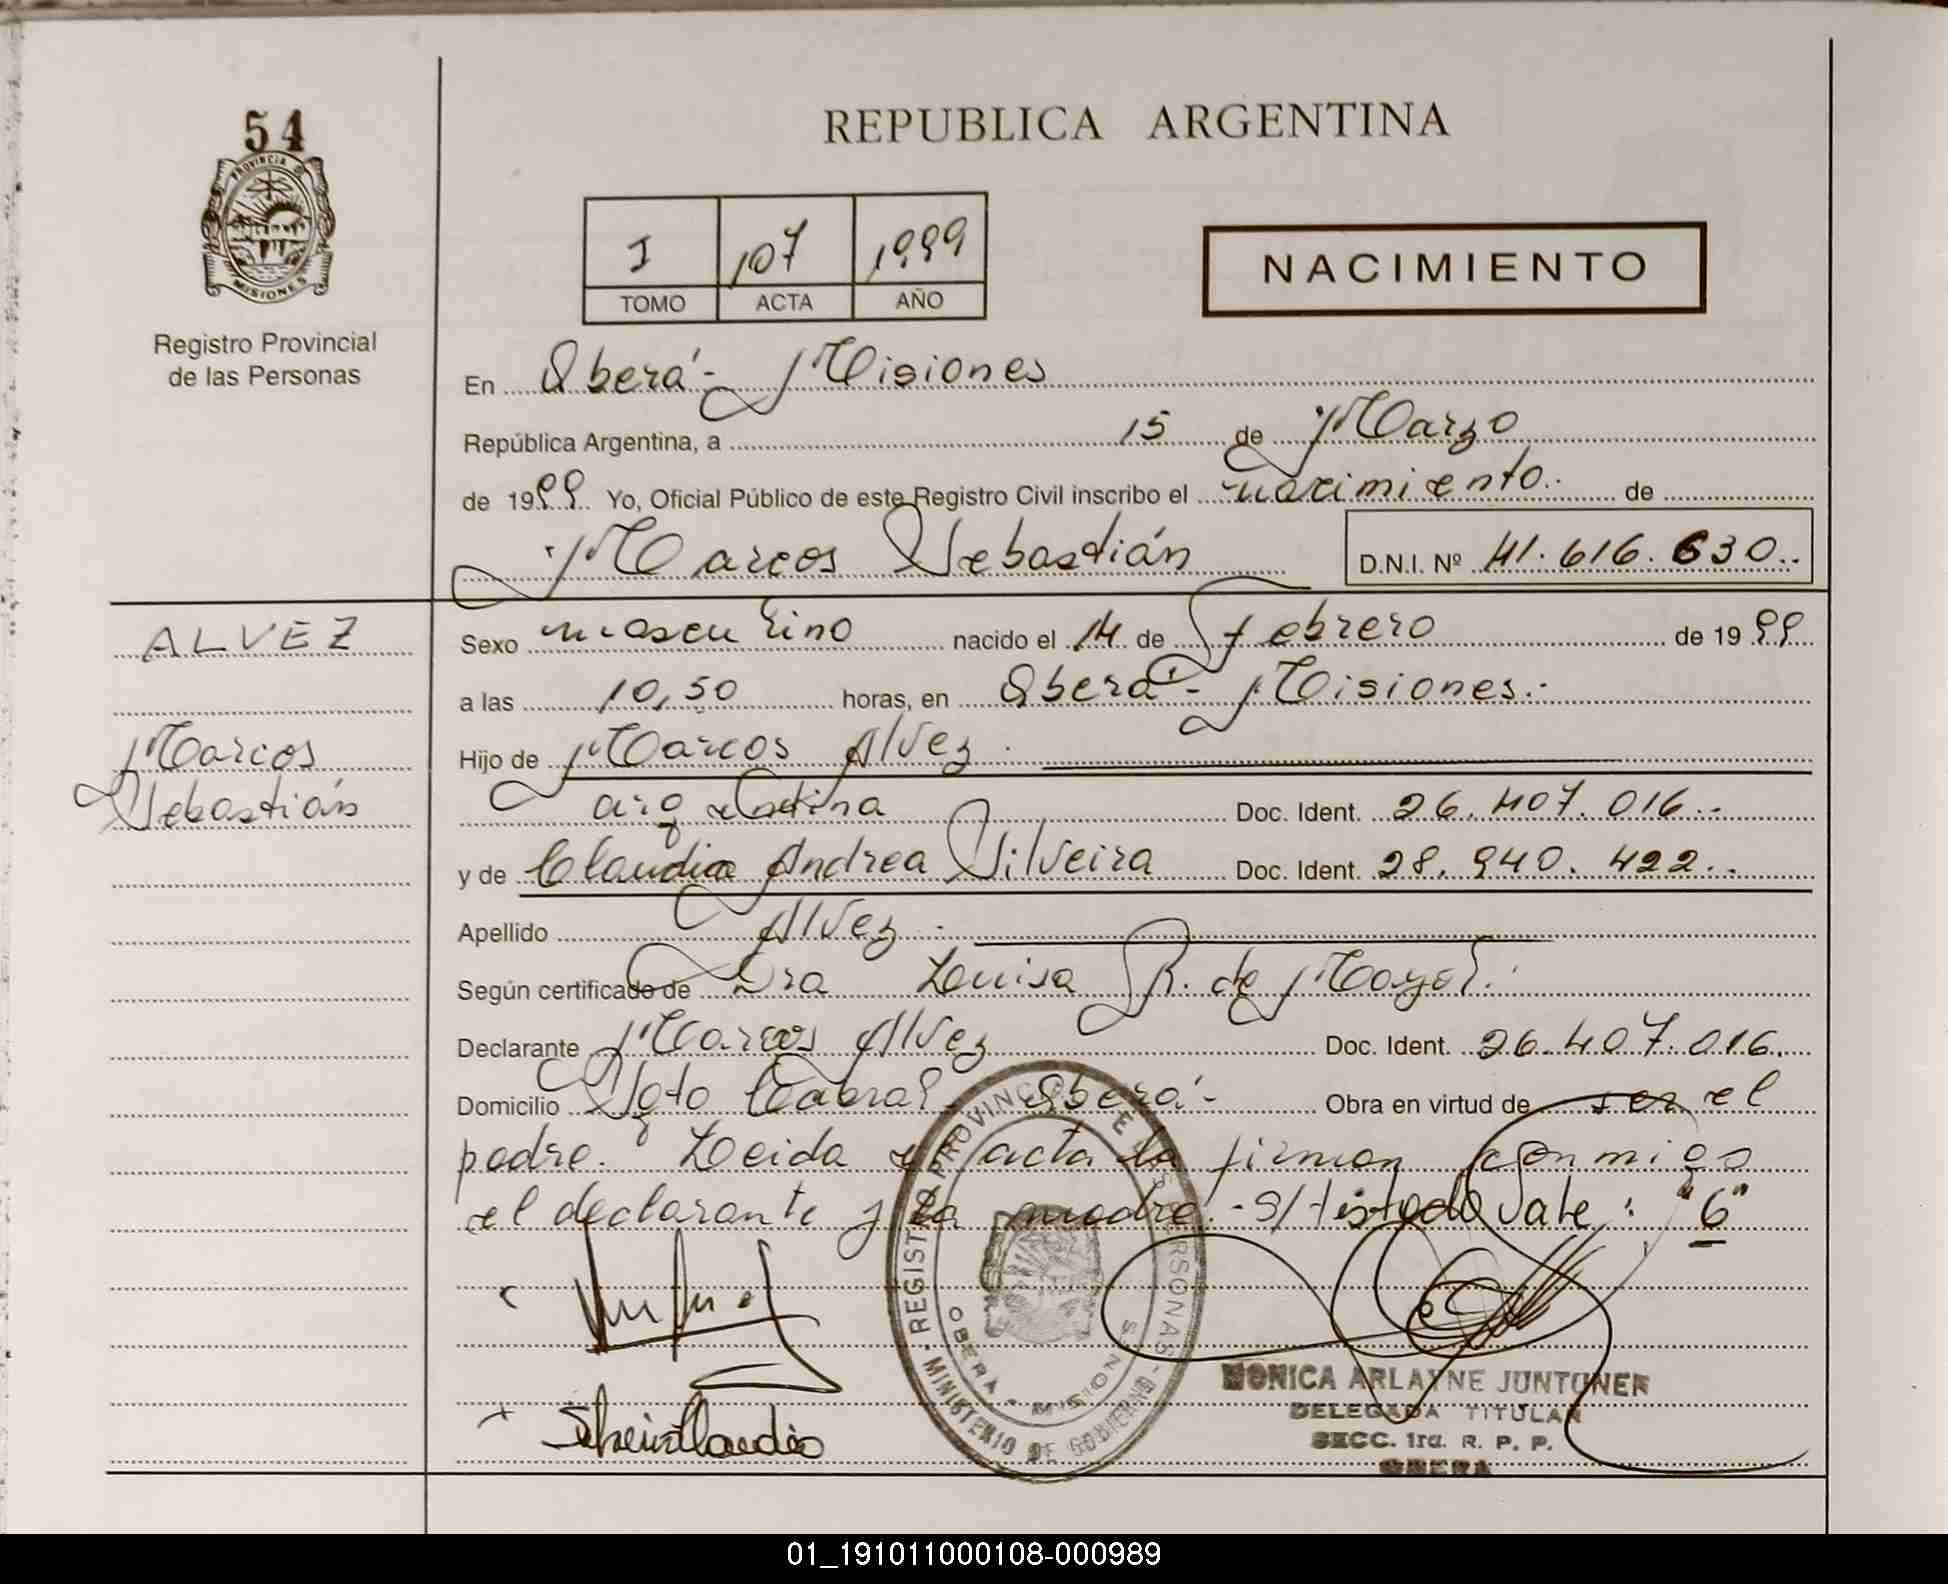 54
PROVINCIA
MISIONES
Registro Provincial
de las Personas
REPUBLICA ARGENTINA
I 107 1999
TOMO ACTA AÑO
NACIMIENTO
En Oberá - Misiones
República Argentina, a 15 de Marzo
de 1999 Yo, Oficial Público de este Registro Civil inscribo el nacimiento. de
Marcos Sebastián D.N.I. Nº 41.616.630..
ALVEZ
Marcos
Sebastián
Sexo masculino nacido el 14 de febrero de 1999
a las 10,50 horas, en Oberá - Misiones.-
Hijo de Marcos Alvez.
argentina Doc. Ident. 26.407.016..
y de Claudia Andrea Silveira Doc. Ident. 28.940.422..
Apellido Alvez.
Según certificado de Dra Luisa R. de Mayol.
Declarante Marcos Alvez Doc. Ident. 26.407.016.
Domicilio Sgto Cabral - Oberá - Obra en virtud de ser el
padre. Leida el acta la firman conmigo
el declarante y la madre.- S/testado Vale: "6"
REGISTRO PROVINCIAL DE LAS PERSONAS - MINISTERIO DE GOBIERNO -
OBERA - MISIONES
Silveira Claudia
MONICA ARLAYNE JUNTUNER
DELEGADA TITULAR
SECC. 1ra. R. P. P.
OBERA
01_191011000108-000989